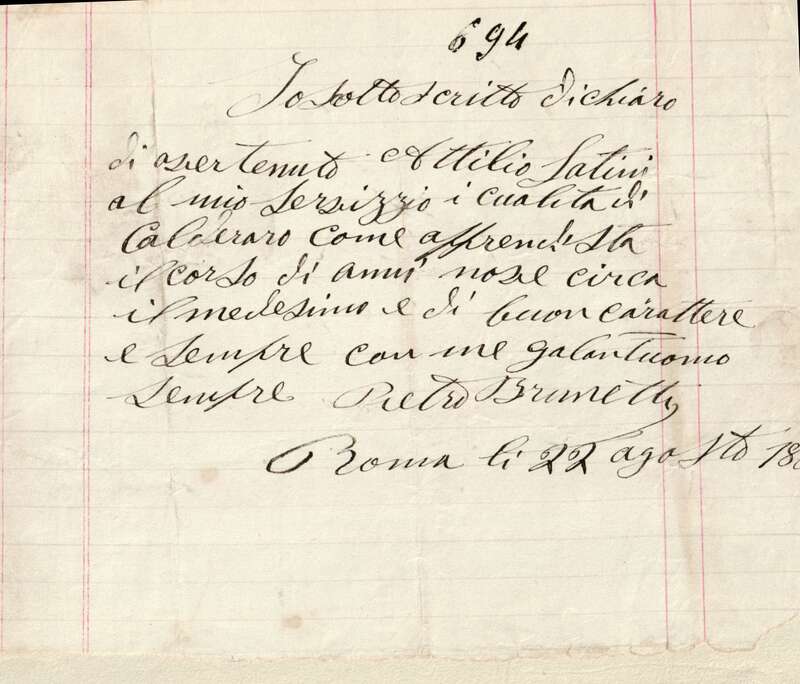 694
Io sotto scritto dichiaro
di aver tenuto Attilio Latini
al mio servizzio i cualita di
Calderaro come apprendista
il corso di anni nove circa
il medesimo e di buon carattere
e sempre con me galantuomo
sempre Pietro Brunetti
Roma li 22 agosto 18